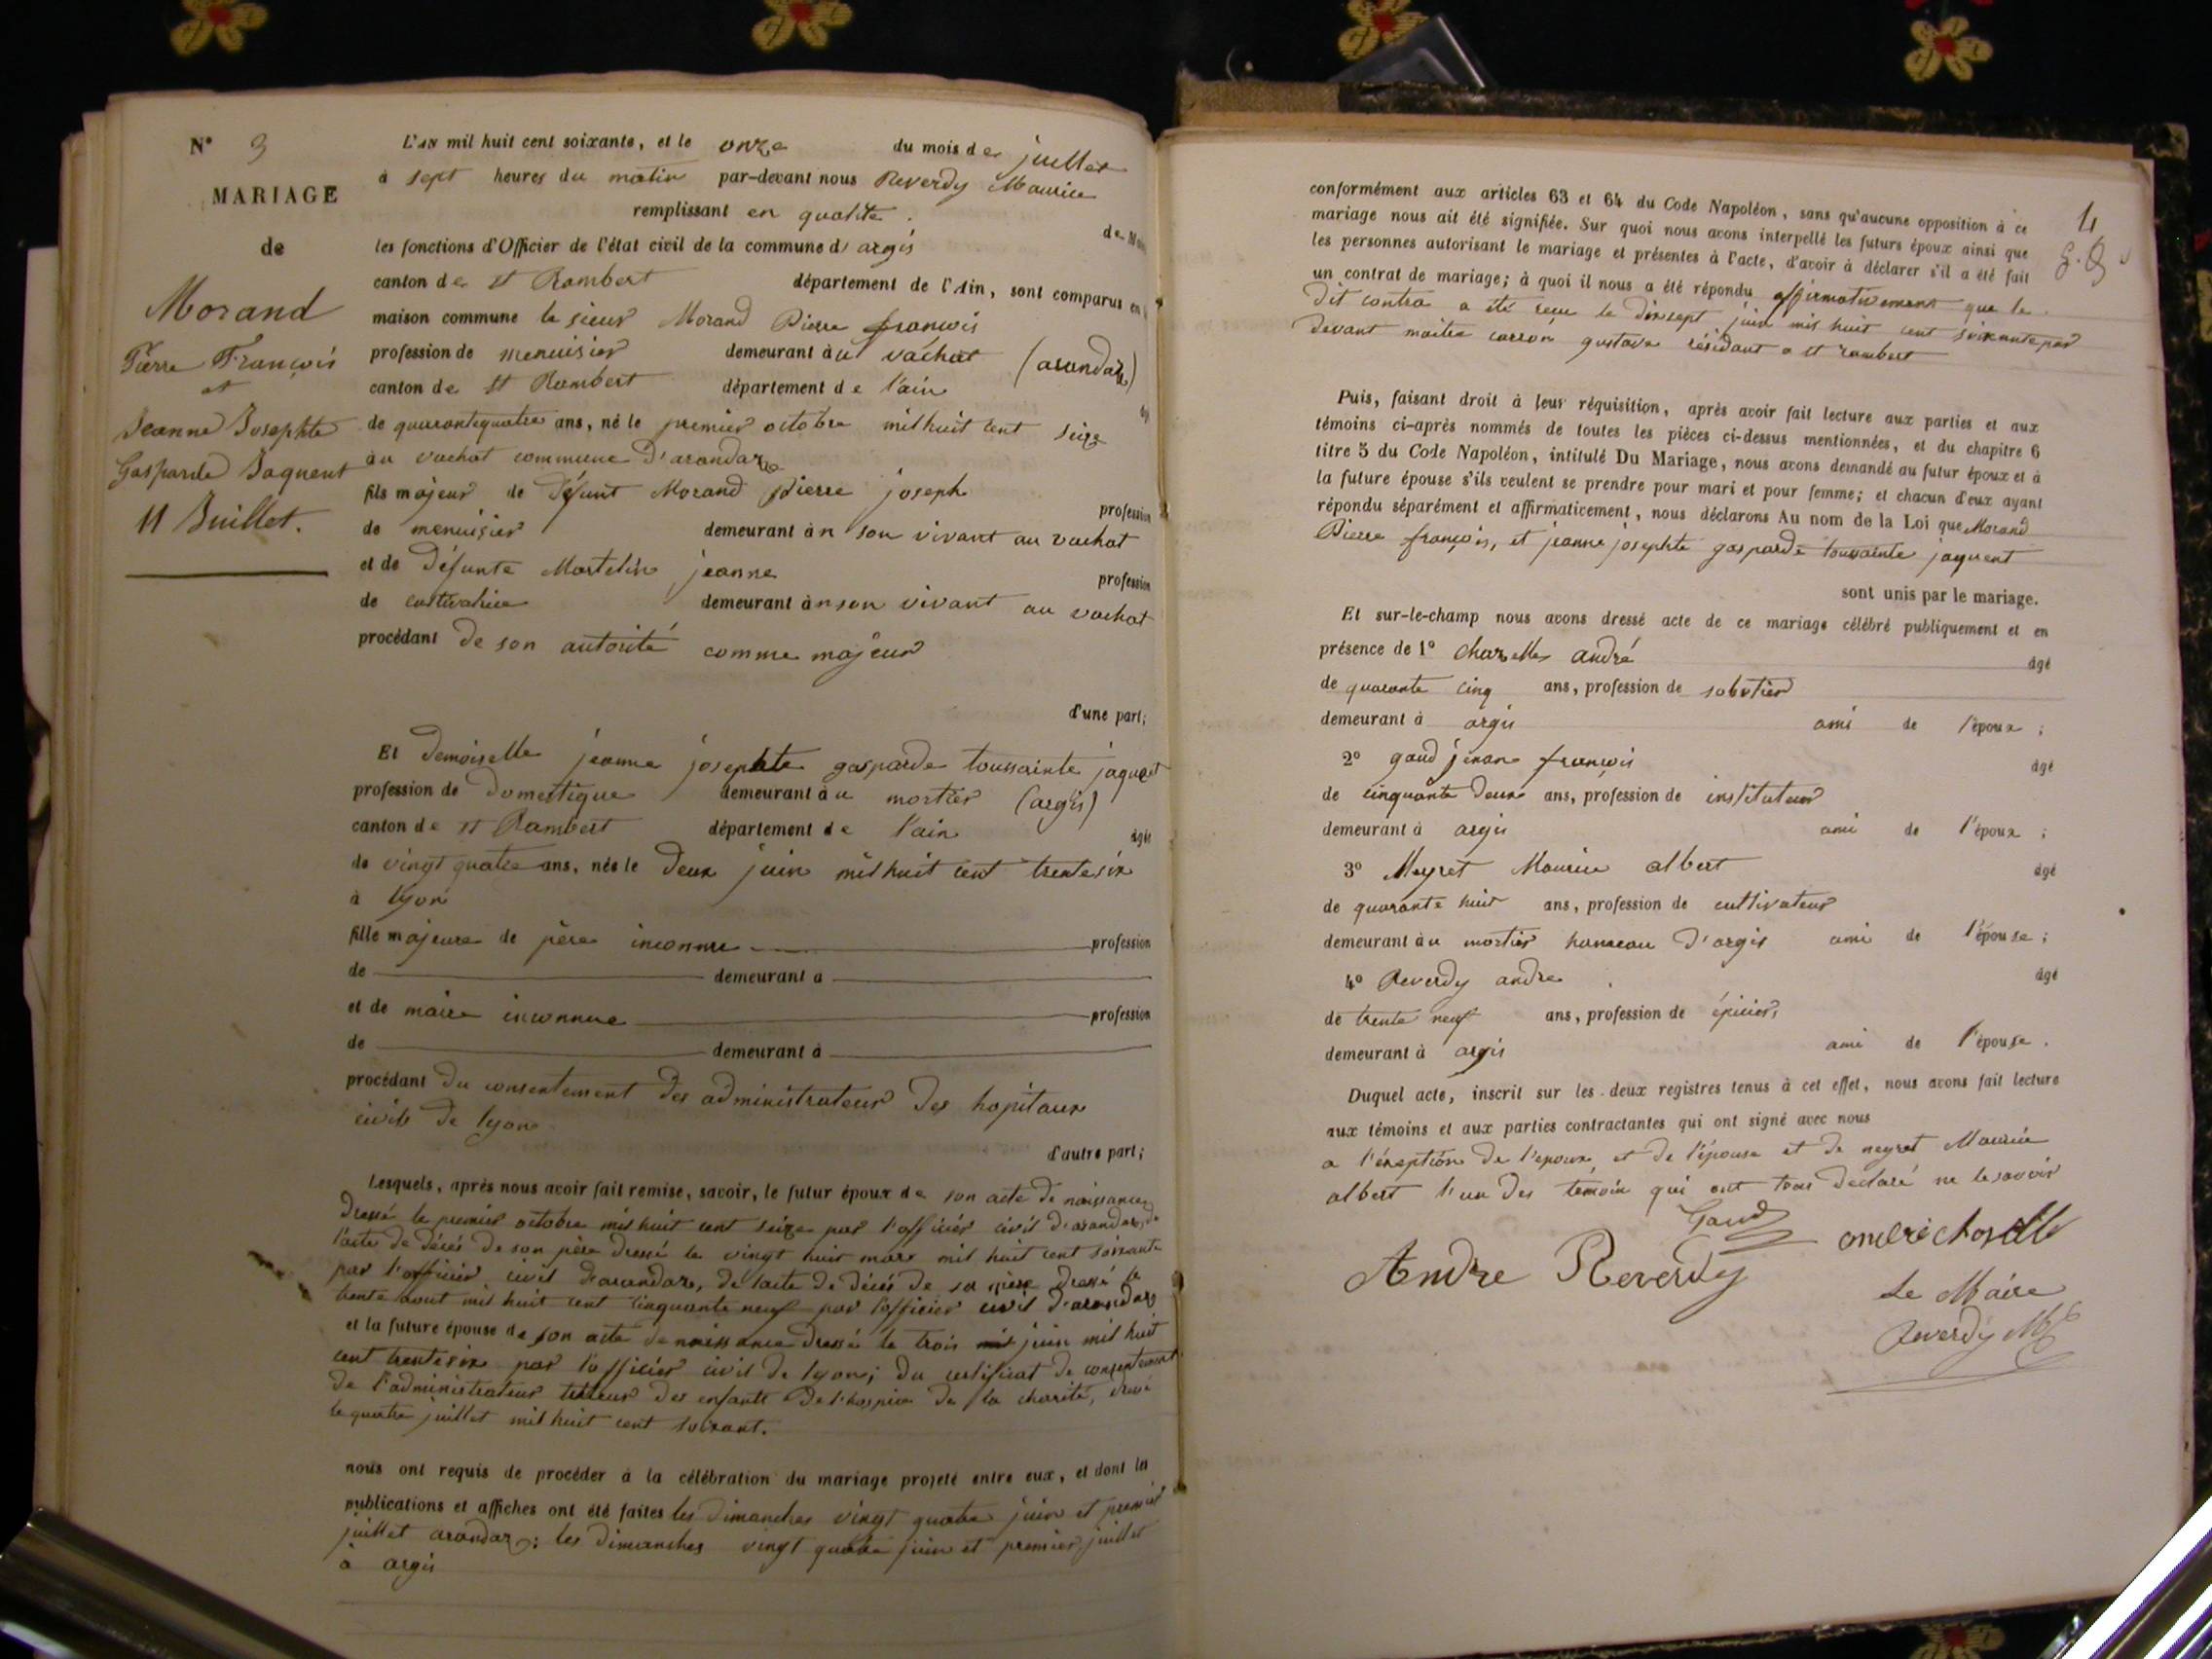 N° 3
MARIAGE
de
Morand
Pierre François
et
Jeanne Josephte
Gasparde Jaquent
11 Juillet.
L'AN mil huit cent soixante, et le onze du mois de juillet
à sept heures du matin par-devant nous Reverdy Maurice
remplissant en qualité de M
les fonctions d'Officier de l'état civil de la commune d'argis
canton de st Rambert département de l'Ain, sont comparus en
maison commune le sieur Morand Pierre françois
profession de menuisier demeurant àu vachat (arandaz)
canton de st Rambert département de l'ain
de quarantequatre ans, né le premier octobre mil huit cent seize
au vachat commune d'arandaz
fils majeur de défunt Morand pierre joseph profession
de menuisier demeurant àn son vivant au vachat
et de défunte Martelin jeanne profession
de cultivatrice demeurant àn son vivant au vachat
procédant de son autorité comme majeur
d'une part;
Et demoiselle jeanne josephte gasparde toussainte jaquent
profession de domestique demeurant àu mortier (argis)
canton de st Rambert département de l'ain âgée
de vingt quatre ans, née le deux juin mil huit cent trente six
à lyon
fille majeure de père inconnu profession
de demeurant a
et de maire inconnue profession
de demeurant à
procédant du consentement des administrateur des hopitaux
civils de lyon
d'autre part;
Lesquels, après nous avoir fait remise, savoir, le futur époux de son acte de naissance
dressé le premier octobre mil huit cent seize par l'officier civil d'arandaz, de
l'acte de décés de son père dressé le vingt huit mars mil huit cent soixante
par l'officier civil d'arandaz, de l'acte de décés de sa mère dressé le
trente aout mil huit cent cinquante neuf par l'officier civil d'arandaz
et la future épouse de son acte de naissance dressé le trois juin mil huit
cent trente six par l'officier civil de lyon; du certificat de consentement
de l'administrateur tuteur des enfants de l'hospice de la charité, dressé
le quatre juillet mil huit cent soixant.
nous ont requis de procéder à la célébration du mariage projeté entre eux, et dont les
publications et affiches ont été faites les dimanches vingt quatre juin et premier
juillet arandaz; les dimanches vingt quatre juin et premier juillet
à argis
4
conformément aux articles 63 et 64 du Code Napoléon, sans qu'aucune opposition à ce
mariage nous ait été signifiée. Sur quoi nous avons interpellé les futurs époux ainsi que
les personnes autorisant le mariage et présentes à l'acte, d'avoir à déclarer s'il a été fait
un contrat de mariage; à quoi il nous a été répondu affirmativement que le
dit contra a été reçu le dixsept juin mil huit cent soixante par
devant maitre carron gustave résidant a st rambert
Puis, faisant droit à leur réquisition, après avoir fait lecture aux parties et aux
témoins ci-après nommés de toutes les pièces ci-dessus mentionnées, et du chapitre 6
titre 5 du Code Napoléon, intitulé Du Mariage, nous avons demandé au futur époux et à
la future épouse s'ils veulent se prendre pour mari et pour femme; et chacun d'eux ayant
répondu séparément et affirmativement, nous déclarons Au nom de la Loi que Morand
Pierre françois, et jeanne josephte gasparde toussainte jaquent
sont unis par le mariage.
Et sur-le-champ nous avons dressé acte de ce mariage célébré publiquement et en
présence de 1° Chazelles andré âgé
de quarante cinq ans, profession de sabotier
demeurant à argis ami de l'époux ;
2° gaud jean françois âgé
de cinquante deux ans, profession de instituteur
demeurant à argis ami de l'époux ;
3° Meyret Maurice albert âgé
de quarante huit ans, profession de cultivateur
demeurant àu mortier hameau d'argis ami de l'épouse ;
4° Reverdy andre âgé
de trente neuf ans, profession de épicier,
demeurant à argis ami de l'épouse .
Duquel acte, inscrit sur les deux registres tenus à cet effet, nous avons fait lecture
aux témoins et aux parties contractantes qui ont signé avec nous
a l'éxeption de l'epoux et de l'épouse et de neyret Maurice
albert l'un des temoin qui ont tous declaré ne le savoir
Gaud
Andre Reverdy
Le Maire
Reverdy